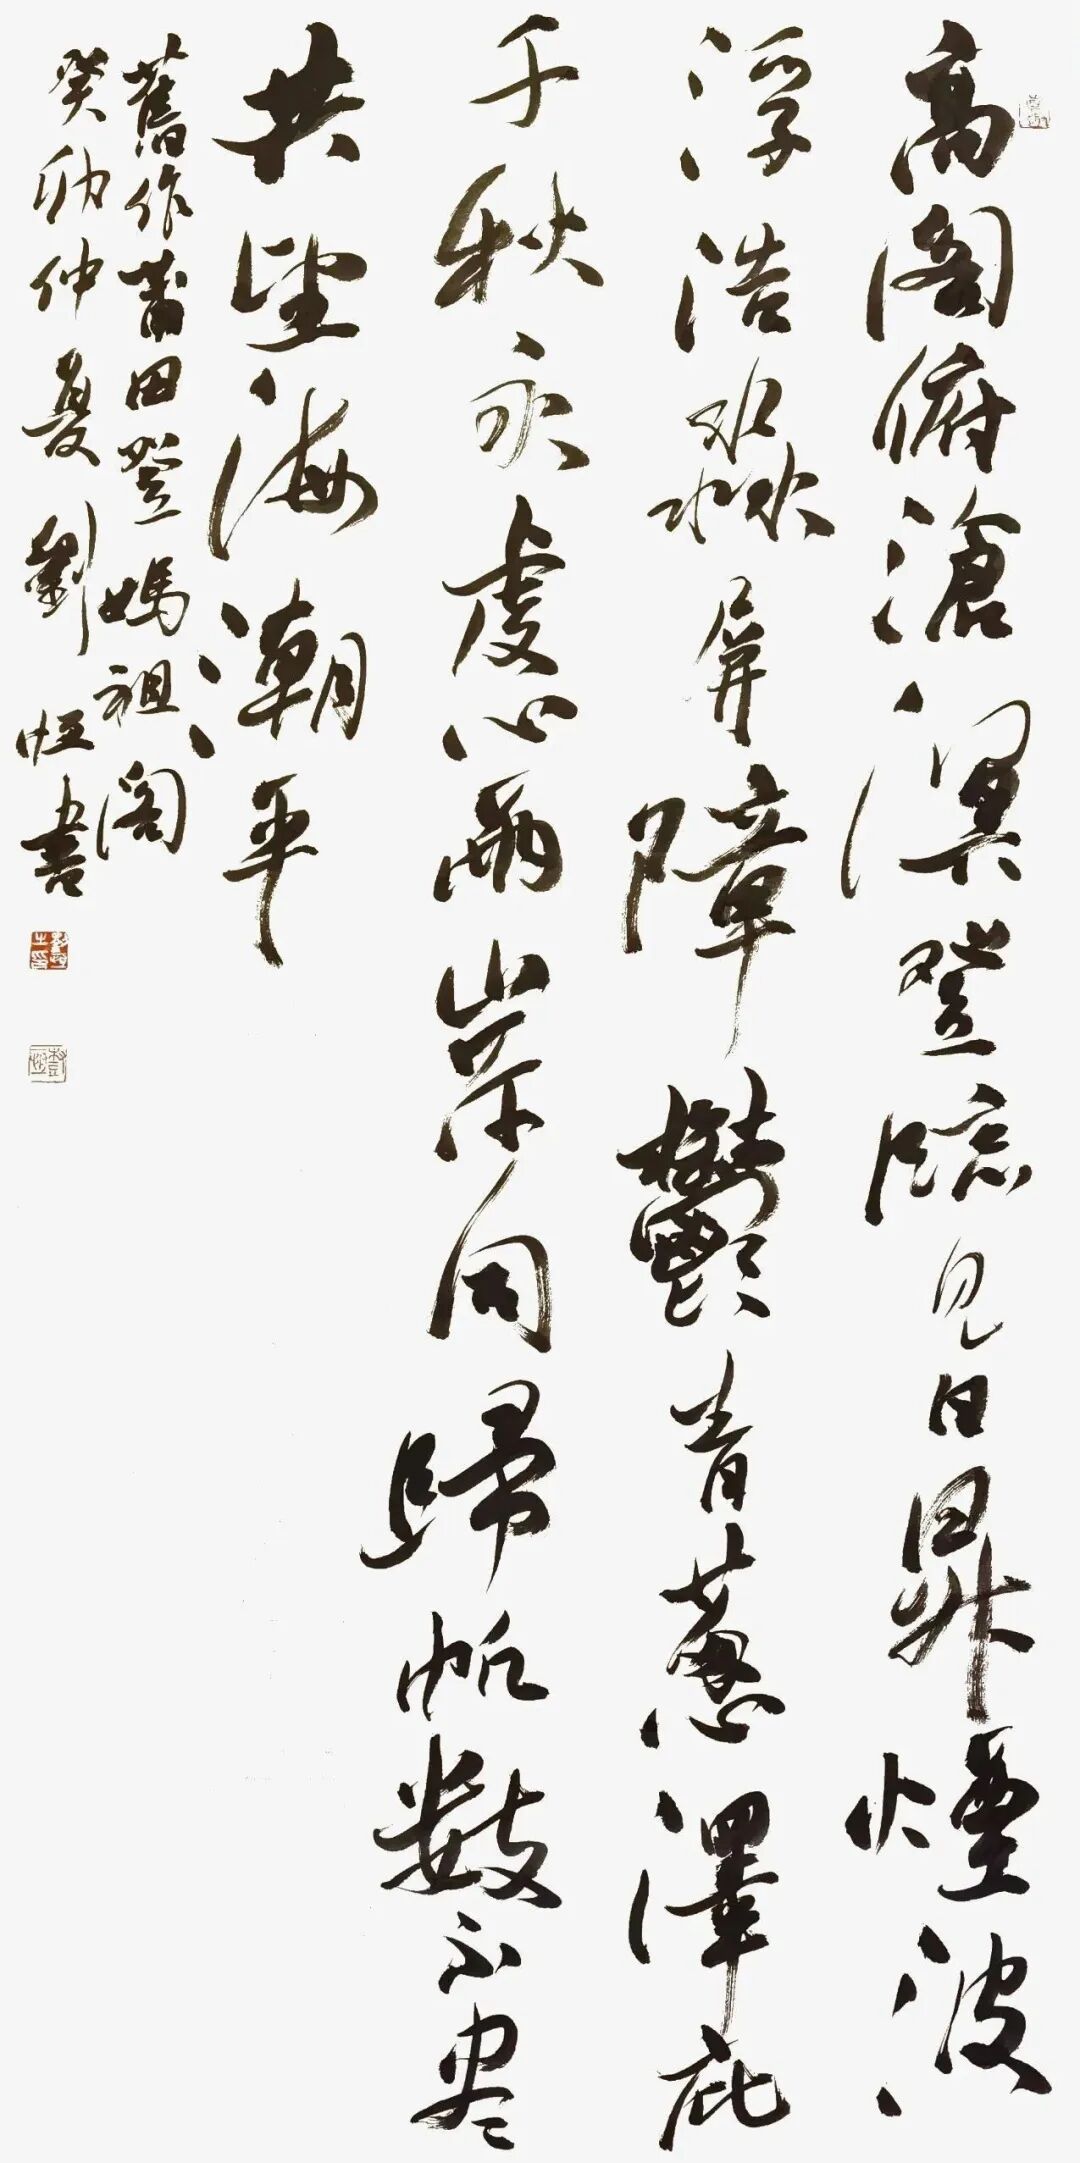 高閣俯滄溟登臨見日昇煙波
浮浩淼屏障鬱青蔥澤庇
千秋永虔心兩岸同歸帆數不盡
共望海潮平
舊作莆田登媽祖閣
癸卯仲夏劉恒書